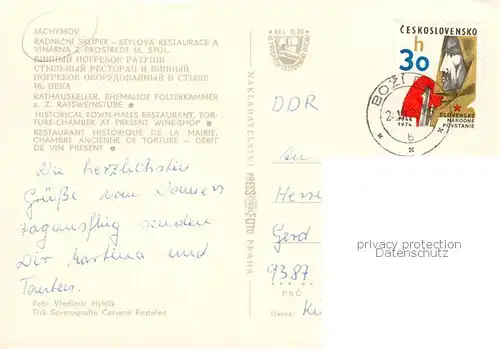 JÁCHYMOV
RADNIČNÍ SKLÍPEK – STYLOVÁ RESTAURACE A
VINÁRNA Z PROSTŘEDÍ 16. STOL.
ВИННЫЙ ПОГРЕБОК РАТУШИ
СТЫЛЬНЫЙ РЕСТОРАН И ВИННЫЙ
ПОГРЕБОК ОБОРУДОВАННЫЙ В СТЫЛЕ
16. ВЕКА
RATHAUSKELLER, EHEMALIGE FOLTERKAMMER
z. Z. RATSWEINSTUBE
HISTORICAL TOWN-HALLS RESTAURANT, TOR-
TURE-CHAMBER AT PRESENT WINE-SHOP
RESTAURANT HISTORIQUE DE LA MAIRIE,
CHAMBRE ANCIENNE DE TORTURE – DÉBIT
DE VIN PRESENT
Die herzlichsten
Grüße vom Donners
tagausflug senden
Dir Martina und
Torsten.
Foto: Vladimír Hyhlík
Tisk Severografia Červený Kostelec
NAKLADATELSTVÍ PRESSFOTO PRAHA
Kčs 0,30
ČESKOSLOVENSKO
h
30
SLOVENSKÉ
NÁRODNÉ
POVSTANIE
1944
1974
BOŽÍ
b
DDR
An
Gerd
9387
PSČ
Okres:
physical copyright protection
Datenschutz